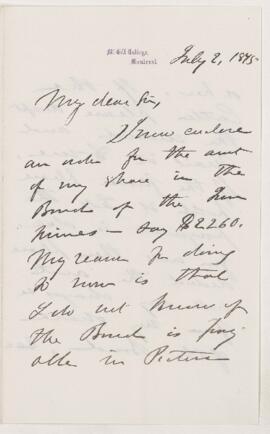 McGill College,
Montreal.
July 2, 1875
My dear Sir,
I now enclose
an order for the amt
of my share in the
Bond of the Iron
mines — say $2260.
My reason for doing
so now is that
I do not know if
the Bond is pay
able in Pictou